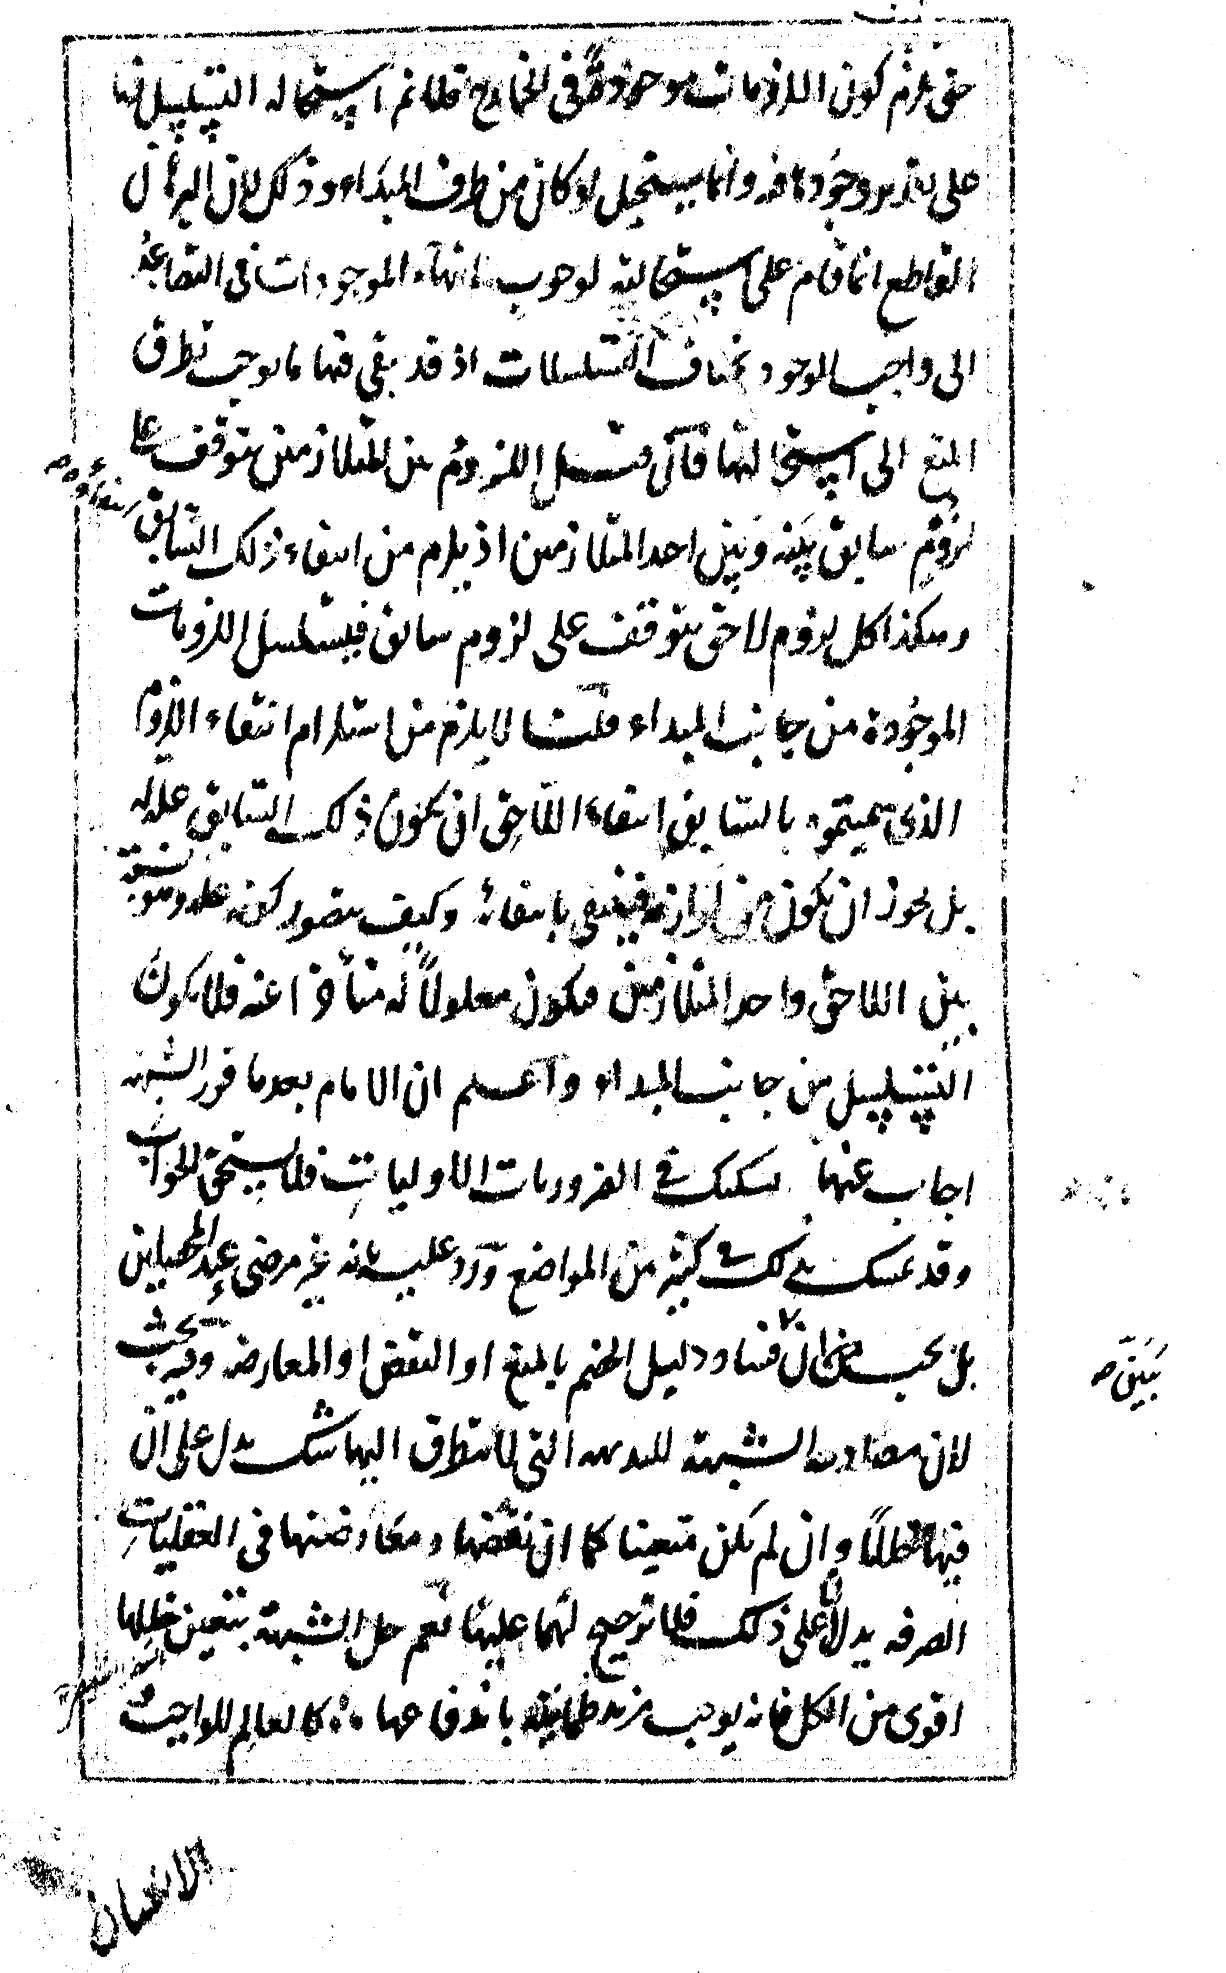 حتى يلزم كون اللزومات موجودة في الخارج فلا نم استحالة التسلسل فيها
على تقدير وجودها فيه وانما يستحيل لو كان من طرف المبداء وذلك لان البرهان
القاطع انما قام على استحالته لوجوب انتهاء الموجودات في التصاعد
الى واجب الوجود بخلاف التسلسلات اذ قد بقي فيها ما يوجب تطرق
المنع الى استحالتها فان قيل اللزوم بين المتلازمين يتوقف على
لزوم سابق بينه وبين احد المتلازمين اذ يلزم من انتفاء ذلك السابق انتفاؤه صح
وهكذا كل لزوم لاحق يتوقف على لزوم سابق فيتسلسل اللزومات
الموجودة من جانب المبداء قلت لا يلزم من استلزام انتفاء اللزوم
الذي سميتموه بالسابق انتفاء اللاحق ان يكون ذلك السابق علة له
بل يجوز ان يكون من لوازمه فينتفي بانتفائه وكيف يتصور كونه علة وهو نسبة
بين اللاحق واحد المتلازمين فيكون معلولاً له متأخراً عنه فلا يكون
التسلسل من جانب المبداء واعلم ان الامام بعد ما قرر الشبهة
اجاب عنها تشكيك في الضروريات الاوليات فلا يستحق الجواب
وقد تمسك بذلك في كثير من المواضع ورد عليه بانه غير مرضي عند المحصلين
بل يجب ان فساد دليل الخصم بالمنع او النقض او المعارضة وفيه بحث
يبين صح
لان مصادمة الشبهة للبديهة التي لا يتطرق اليها شك يدل على ان
فيها خللاً وان لم يكن متعينا كما ان نقضها ومعارضتها في العقليات
الصرفة يدلان على ذلك فلا ترجيح لهما عليها نعم حل الشبهة بتعيين خللها
اقوى من الكل فانه يوجب مزيد طمانينة باندفاعها كالعالم للواجب
الانسان